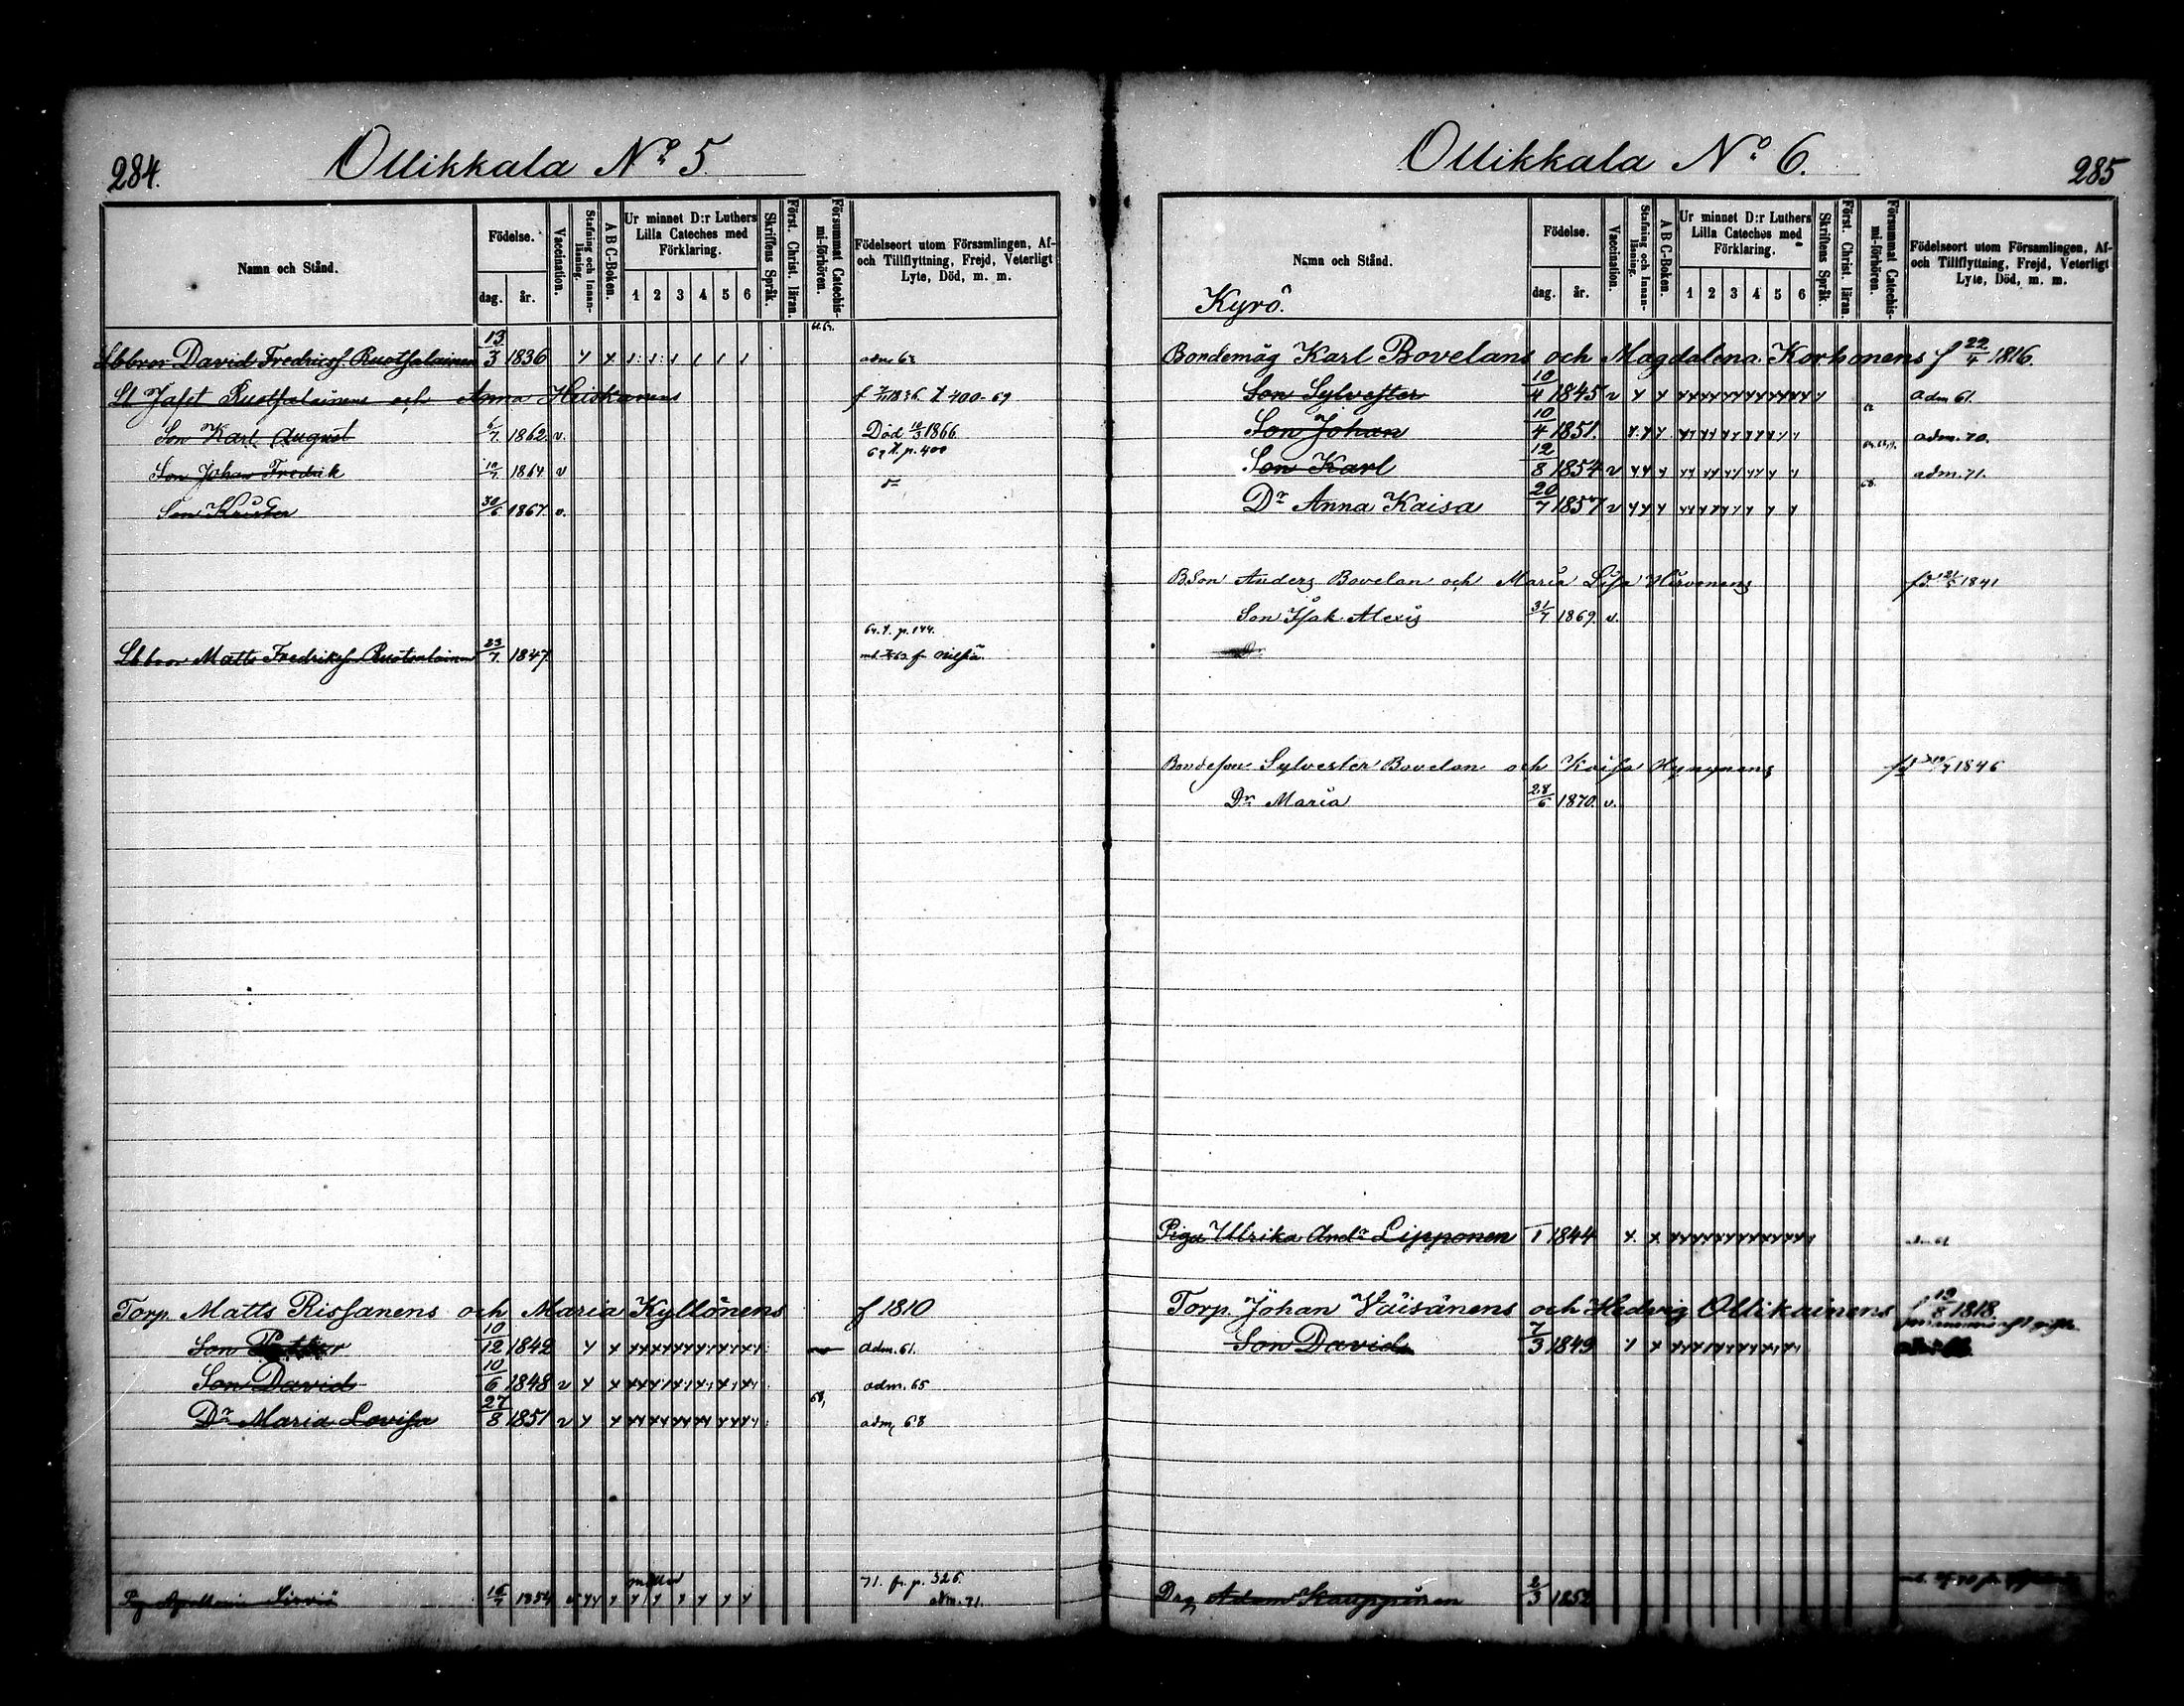 284.
Ollikkala No 5.
Namn och Stånd.
Födelse.
dag. år.
Vaccination.
Stafning och Innanläsning.
A B C-Boken.
Ur minnet D:r Luthers Lilla Cateches med Förklaring.
1 2 3 4 5 6
Skriftens Språk.
Först. Christ. läran.
Försummat Catechismi-förhören.
Födelseort utom Församlingen, Af- och Tillflyttning, Frejd, Veterligt Lyte, Död, m. m.
Lbbror David Fredricsf. Ruotsalainen 13/3 1836 adm 62
Lb Jafet Ruotsalainens och Anna Huiskonens 1836 400-69
Son Karl August 6/7 1862 v. Död 1866
Son Johan Fredrik 10/7 1864 v p. 400
Son Krister 30/6 1867 v.
64. p. 144.
Lbbror Matts Fredriksf Ruotsalainen 23/7 1847
Torp. Matts Rissanens och Maria Kyllönens f 1810
Son Petter 10/12 1842 adm. 61.
Son David 10/6 1848 v adm. 65
Dr Maria Lovisa 27/8 1851 v 68, adm 68
Pig Apollonia 16/7 1854 71. fr. p. 326.
adm. 71.
Ollikkala No 6.
285
Namn och Stånd.
Kyrö.
Födelse.
dag. år.
Vaccination.
Stafning och Innanläsning.
A B C-Boken.
Ur minnet D:r Luthers Lilla Cateches med Förklaring.
1 2 3 4 5 6
Skriftens Språk.
Först. Christ. läran.
Försummat Catechismi-förhören.
Födelseort utom Församlingen, Af- och Tillflyttning, Frejd, Veterligt Lyte, Död, m. m.
Bondemåg Karl Bovelans och Magdalena Korhonens f 22/4 1816.
Son Sylvester 10/4 1845 v adm 61.
Son Johan 10/4 1851. adm. 70.
Son Karl 12/8 1854 v adm. 71.
Dr Anna Kaisa 20/7 1857 v 68.
BSon Anders Bovelan och Maria Lisa Hirvonens 1841
Son Isak Alexis 31/7 1869. v.
Bondeson Sylvester Bovelan och Kaisa Hynynens 1846
Dr Maria 28/6 1870. v.
Piga Ulrika Andr Lipponen 1 1844
Torp. Johan Väisänens och Hedvig Ollikainens f 12/8 1818
Son David 7/3 1849
Drg Adam Kauppinen 2/3 1852